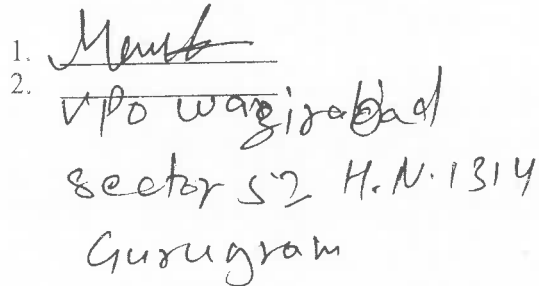 1.
2.
VPO wazirabad
sector 52 H.N. 1314
Gurugram